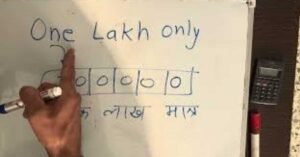 One Lakh only
0 0 0 0 0
लाख मात्र